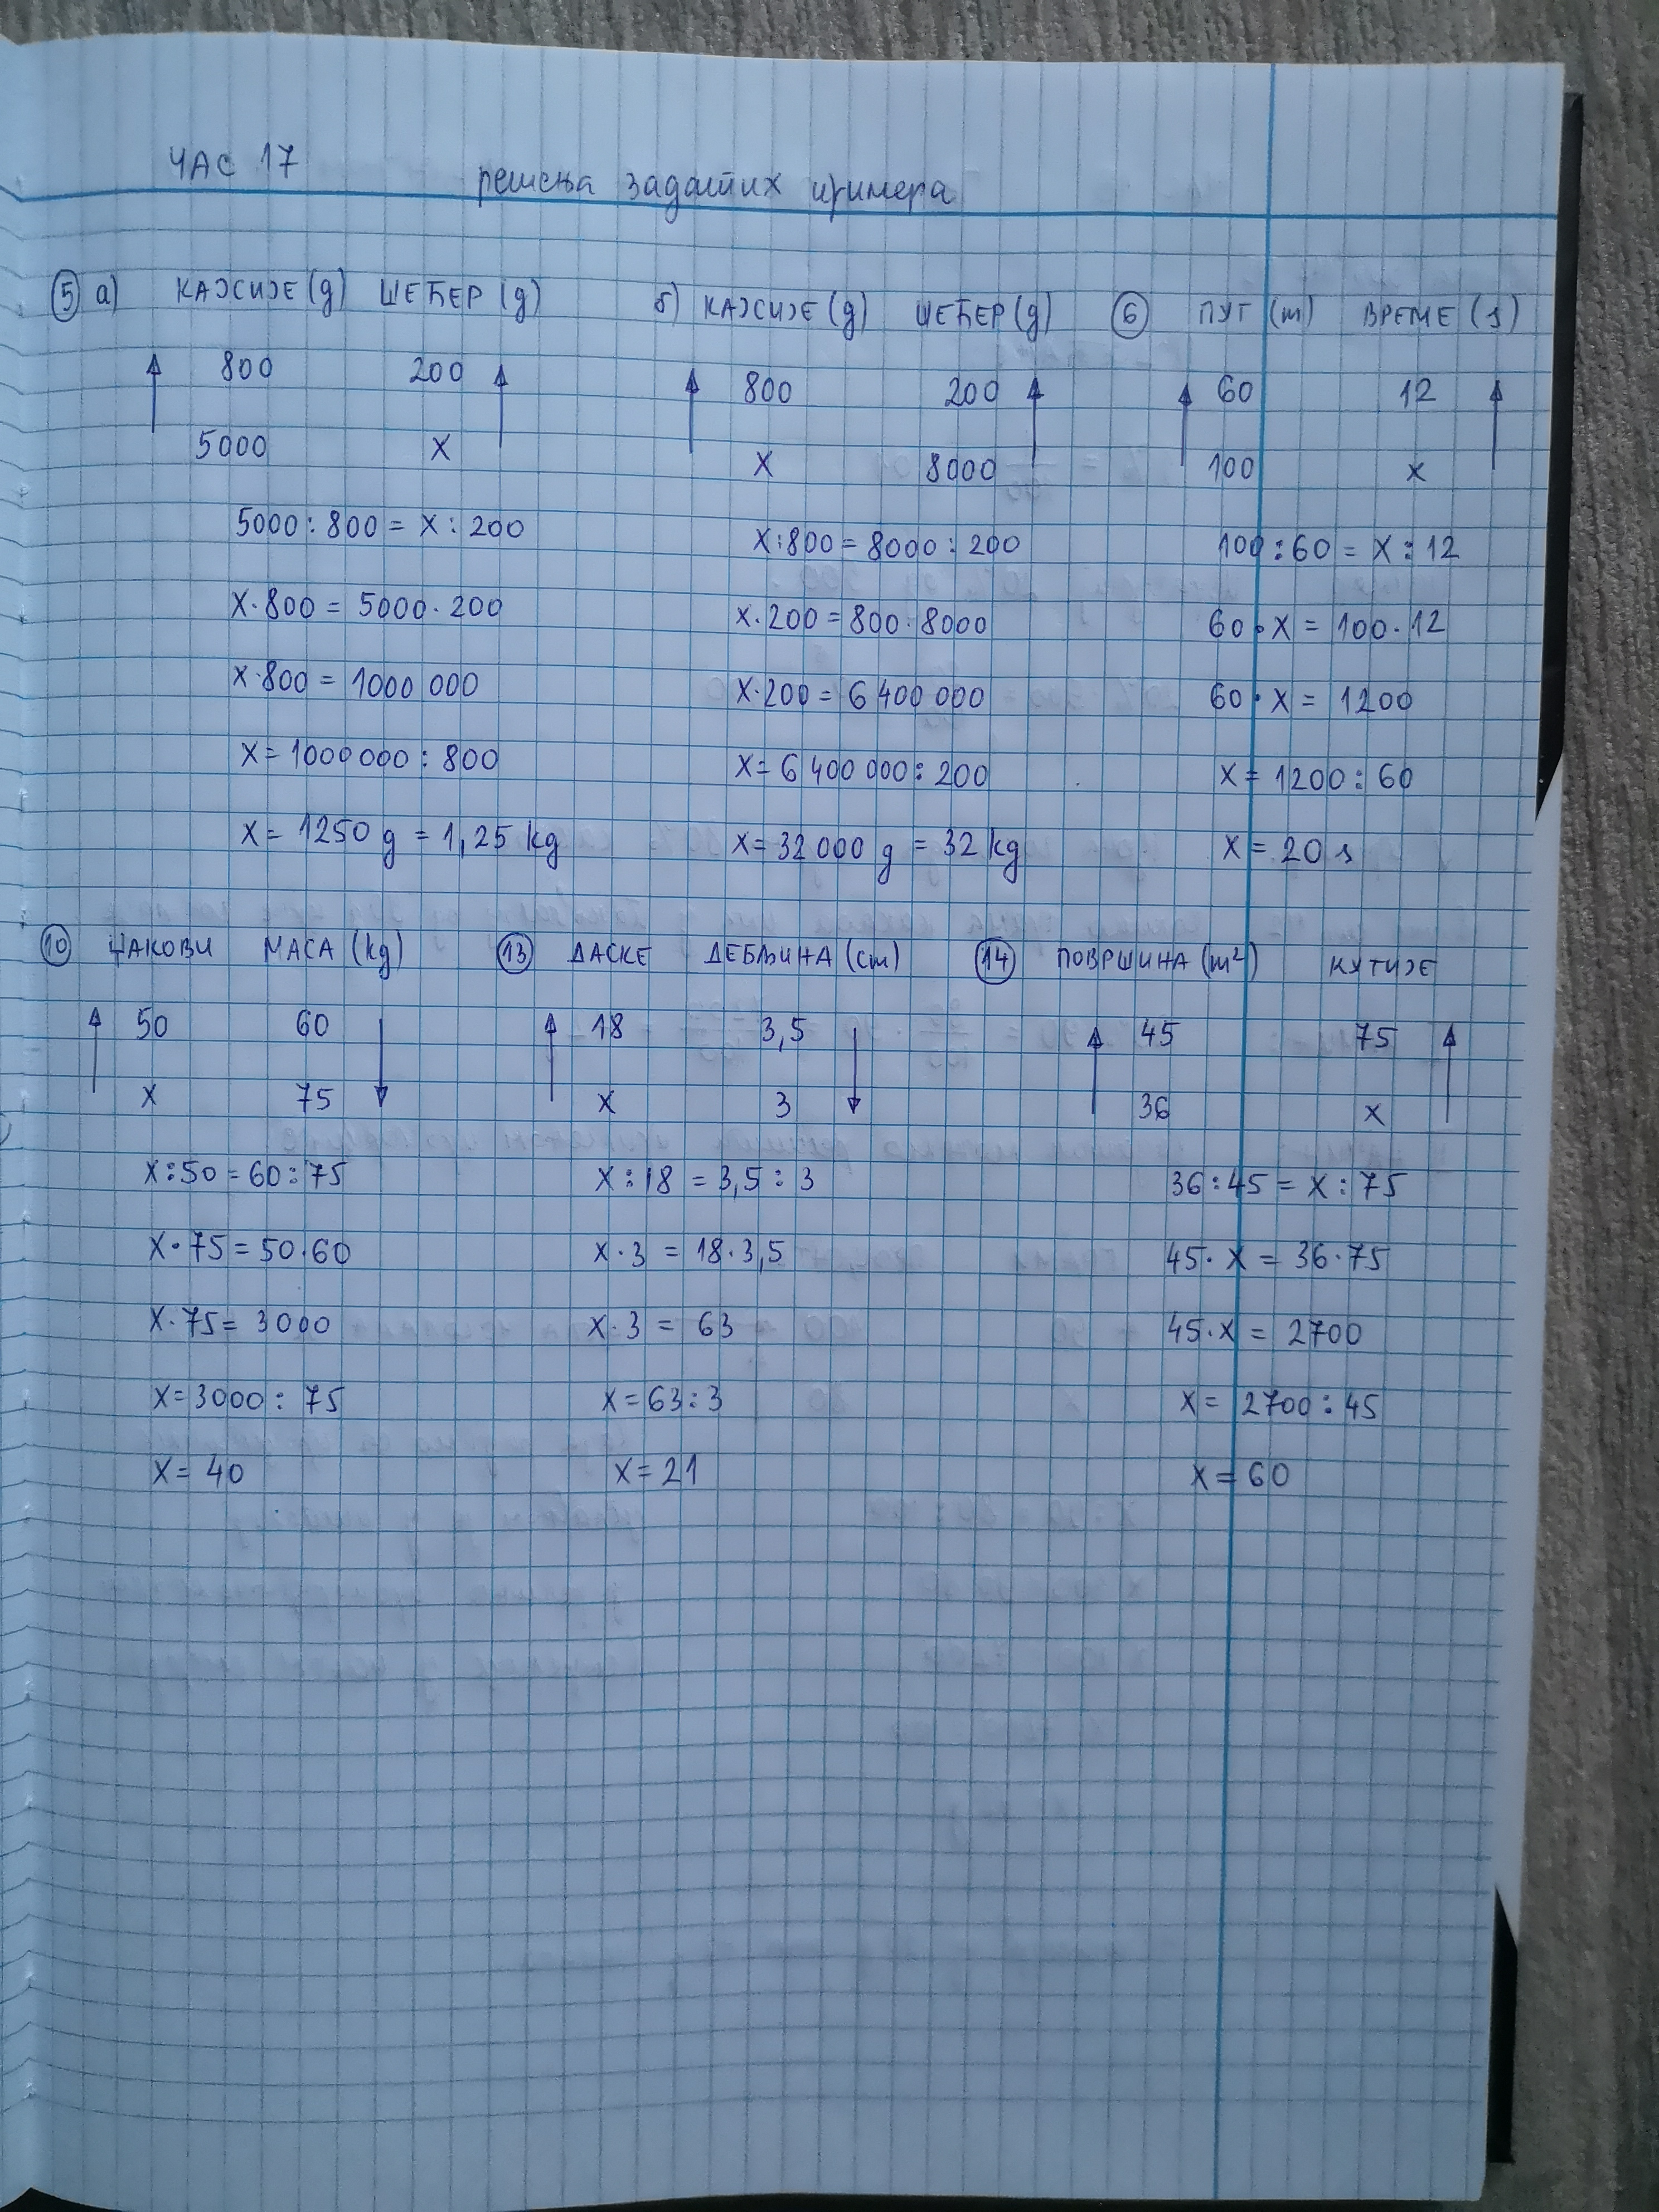 ЧАС 17
решења задатих примера
5 а) КАЈСИЈЕ (g) ШЕЋЕР (g)
800 200
5000 X
5000 : 800 = X : 200
X · 800 = 5000 · 200
X · 800 = 1000 000
X = 1000 000 : 800
X = 1250 g = 1,25 kg
б) КАЈСИЈЕ (g) ШЕЋЕР (g)
800 200
X 8000
X : 800 = 8000 : 200
X · 200 = 800 · 8000
X · 200 = 6 400 000
X = 6 400 000 : 200
X = 32 000 g = 32 kg
6 ПУТ (m) ВРЕМЕ (s)
60 12
100 X
100 : 60 = X : 12
60 · X = 100 · 12
60 · X = 1200
X = 1200 : 60
X = 20 s
10 ЏАКОВИ МАСА (kg)
50 60
X 75
X : 50 = 60 : 75
X · 75 = 50 · 60
X · 75 = 3000
X = 3000 : 75
X = 40
13 ДАСКЕ ДЕБЉИНА (cm)
18 3,5
X 3
X : 18 = 3,5 : 3
X · 3 = 18 · 3,5
X · 3 = 63
X = 63 : 3
X = 21
14 ПОВРШИНА (m²) КУТИЈЕ
45 75
36 X
36 : 45 = X : 75
45 · X = 36 · 75
45 · X = 2700
X = 2700 : 45
X = 60